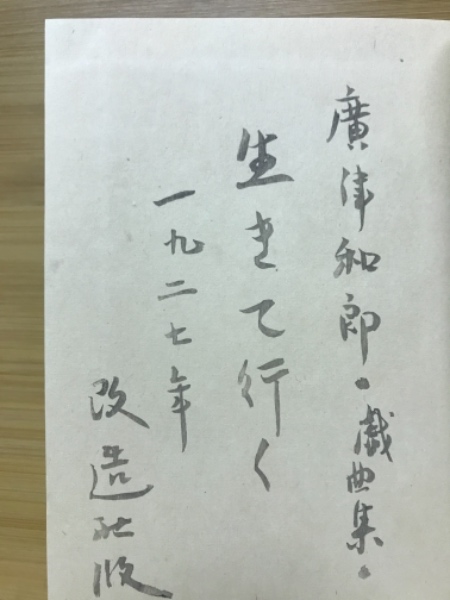 廣津和郎。戯曲集。
生きて行く
一九二七年
改造社版